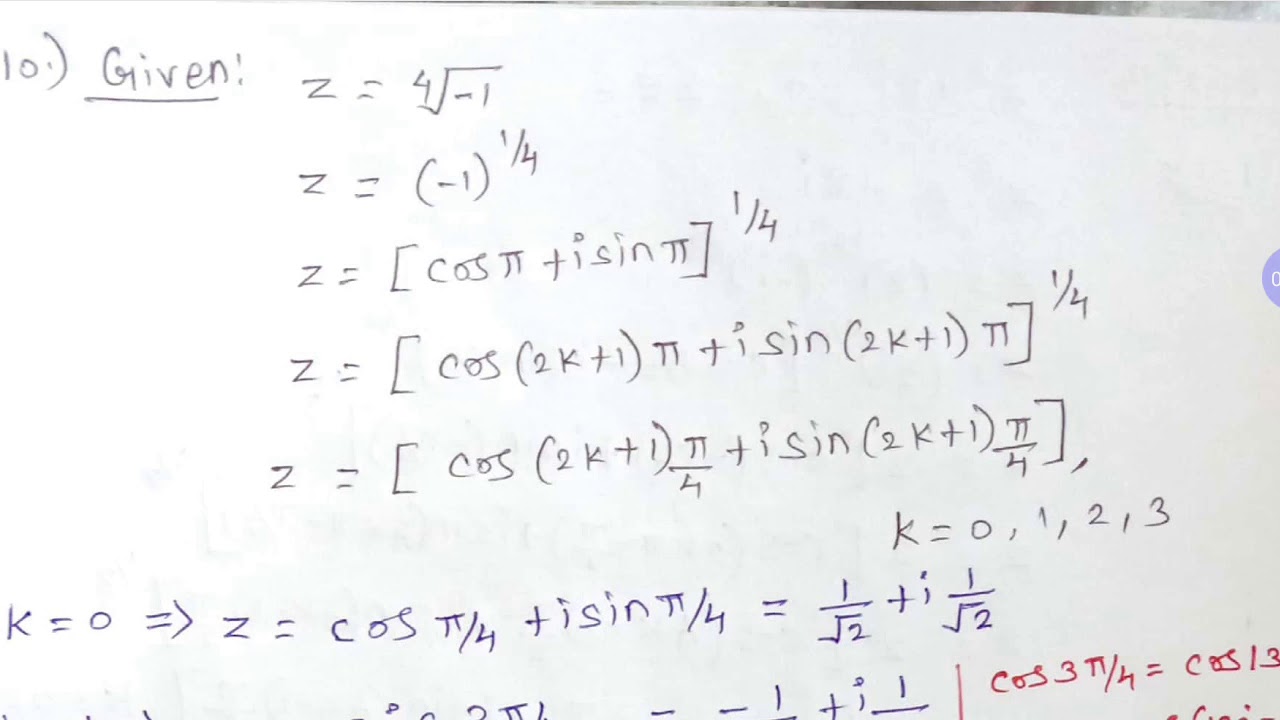 10.) Given: z = ∜-1
z = (-1)^1/4
z = [cosπ + i sinπ]^1/4
z = [cos(2k+1)π + i sin(2k+1)π]^1/4
z = [cos(2k+1)π/4 + i sin(2k+1)π/4],
k = 0, 1, 2, 3
k = 0 => z = cos π/4 + i sin π/4 = 1/√2 + i 1/√2
cos 3π/4 = cos 13